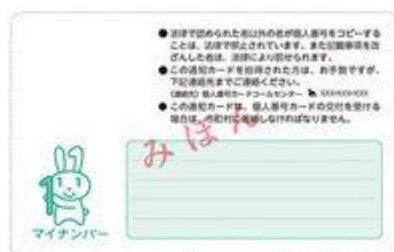 ●法律で認められた者以外の者が個人番号をコピーする
ことは、法律で禁止されています。また記載事項を改
ざんした者は、法律により罰せられます。
●この通知カードを拾得された方は、お手数ですが、
下記連絡先までご連絡ください。
(連絡先) 個人番号カードコールセンター XXXX-XXX-XXX
●この通知カードは、個人番号カードの交付を受ける
場合は、市町村に返納しなければなりません。
みほん
マイナンバー